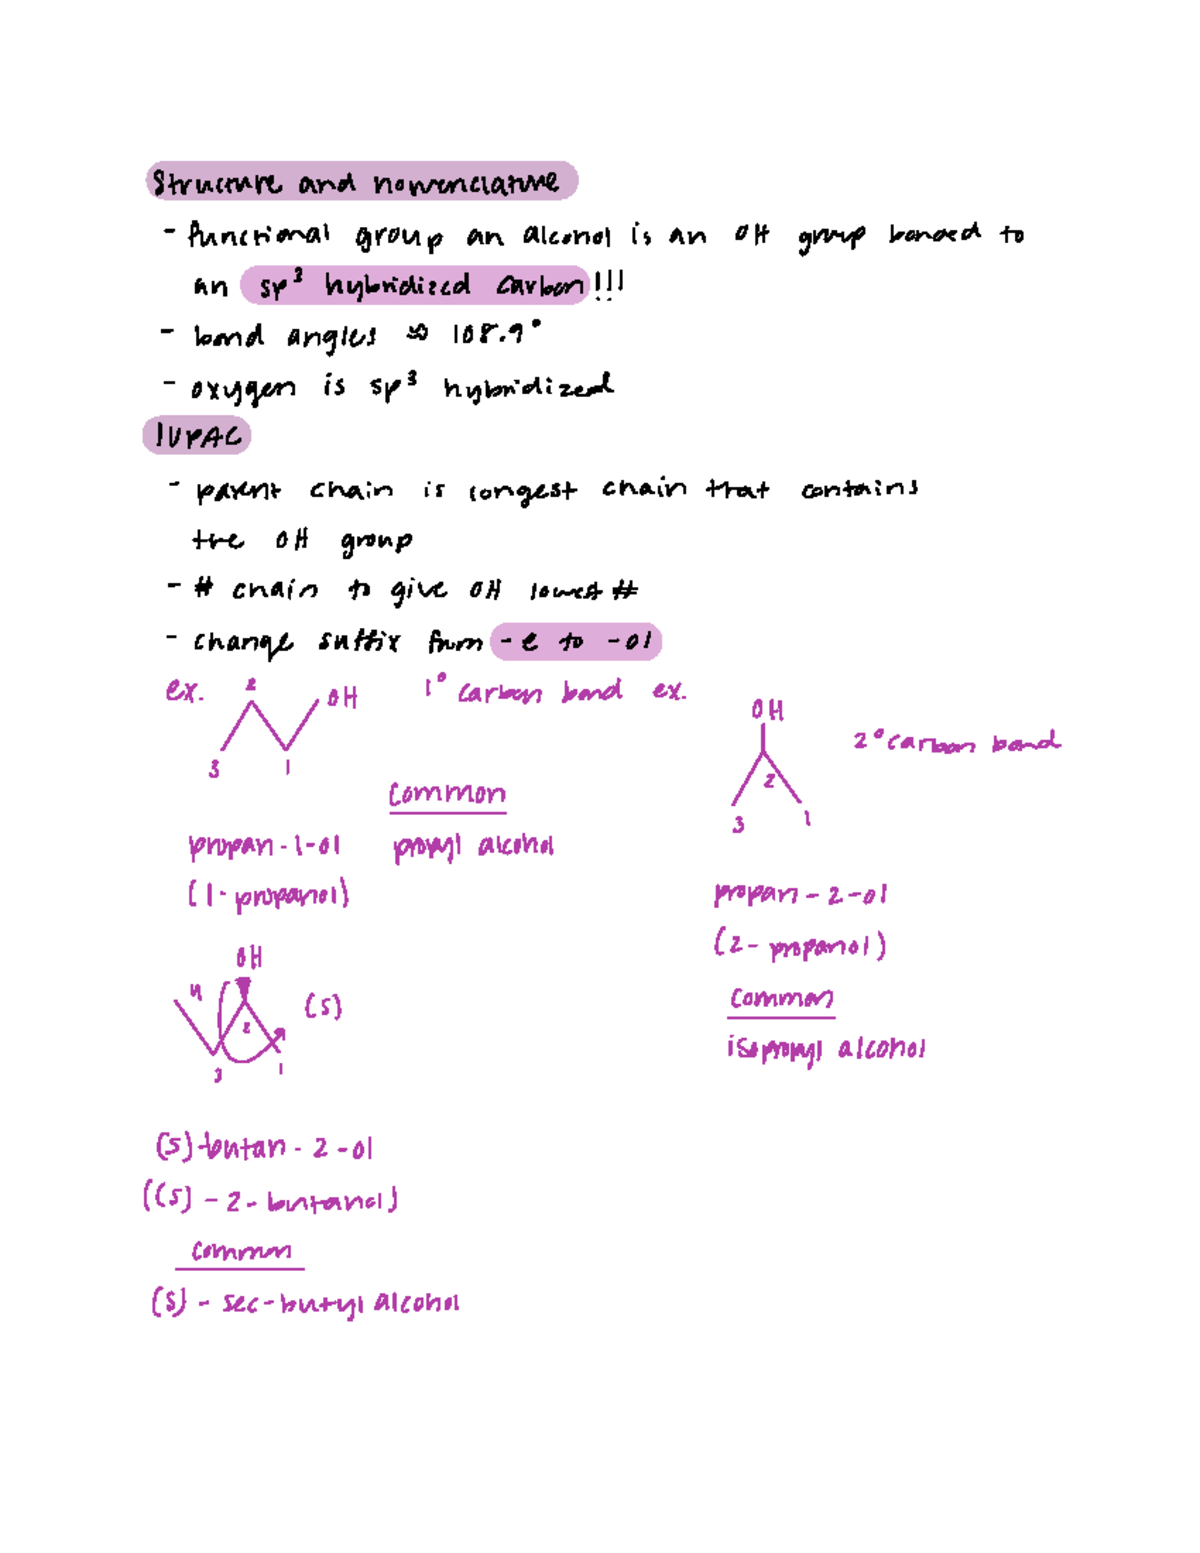 Structure and nomenclature
- functional group an alcohol is an OH group bonded to
an sp³ hybridized carbon!!!
- bond angles ≈ 108.9°
- oxygen is sp³ hybridized
IUPAC
- parent chain is longest chain that contains
the OH group
- # chain to give OH lowest #
- change suffix from -e to -ol
ex. 2 OH 1° carbon bond ex.
3 1
OH
2° carbon bond
2
3 1
common
propan-1-ol propyl alcohol
(1-propanol)
propan-2-ol
(2-propanol)
common
isopropyl alcohol
OH
4 2 (S)
3 1
(S)-butan-2-ol
((S)-2-butanol)
common
(S)-sec-butyl alcohol